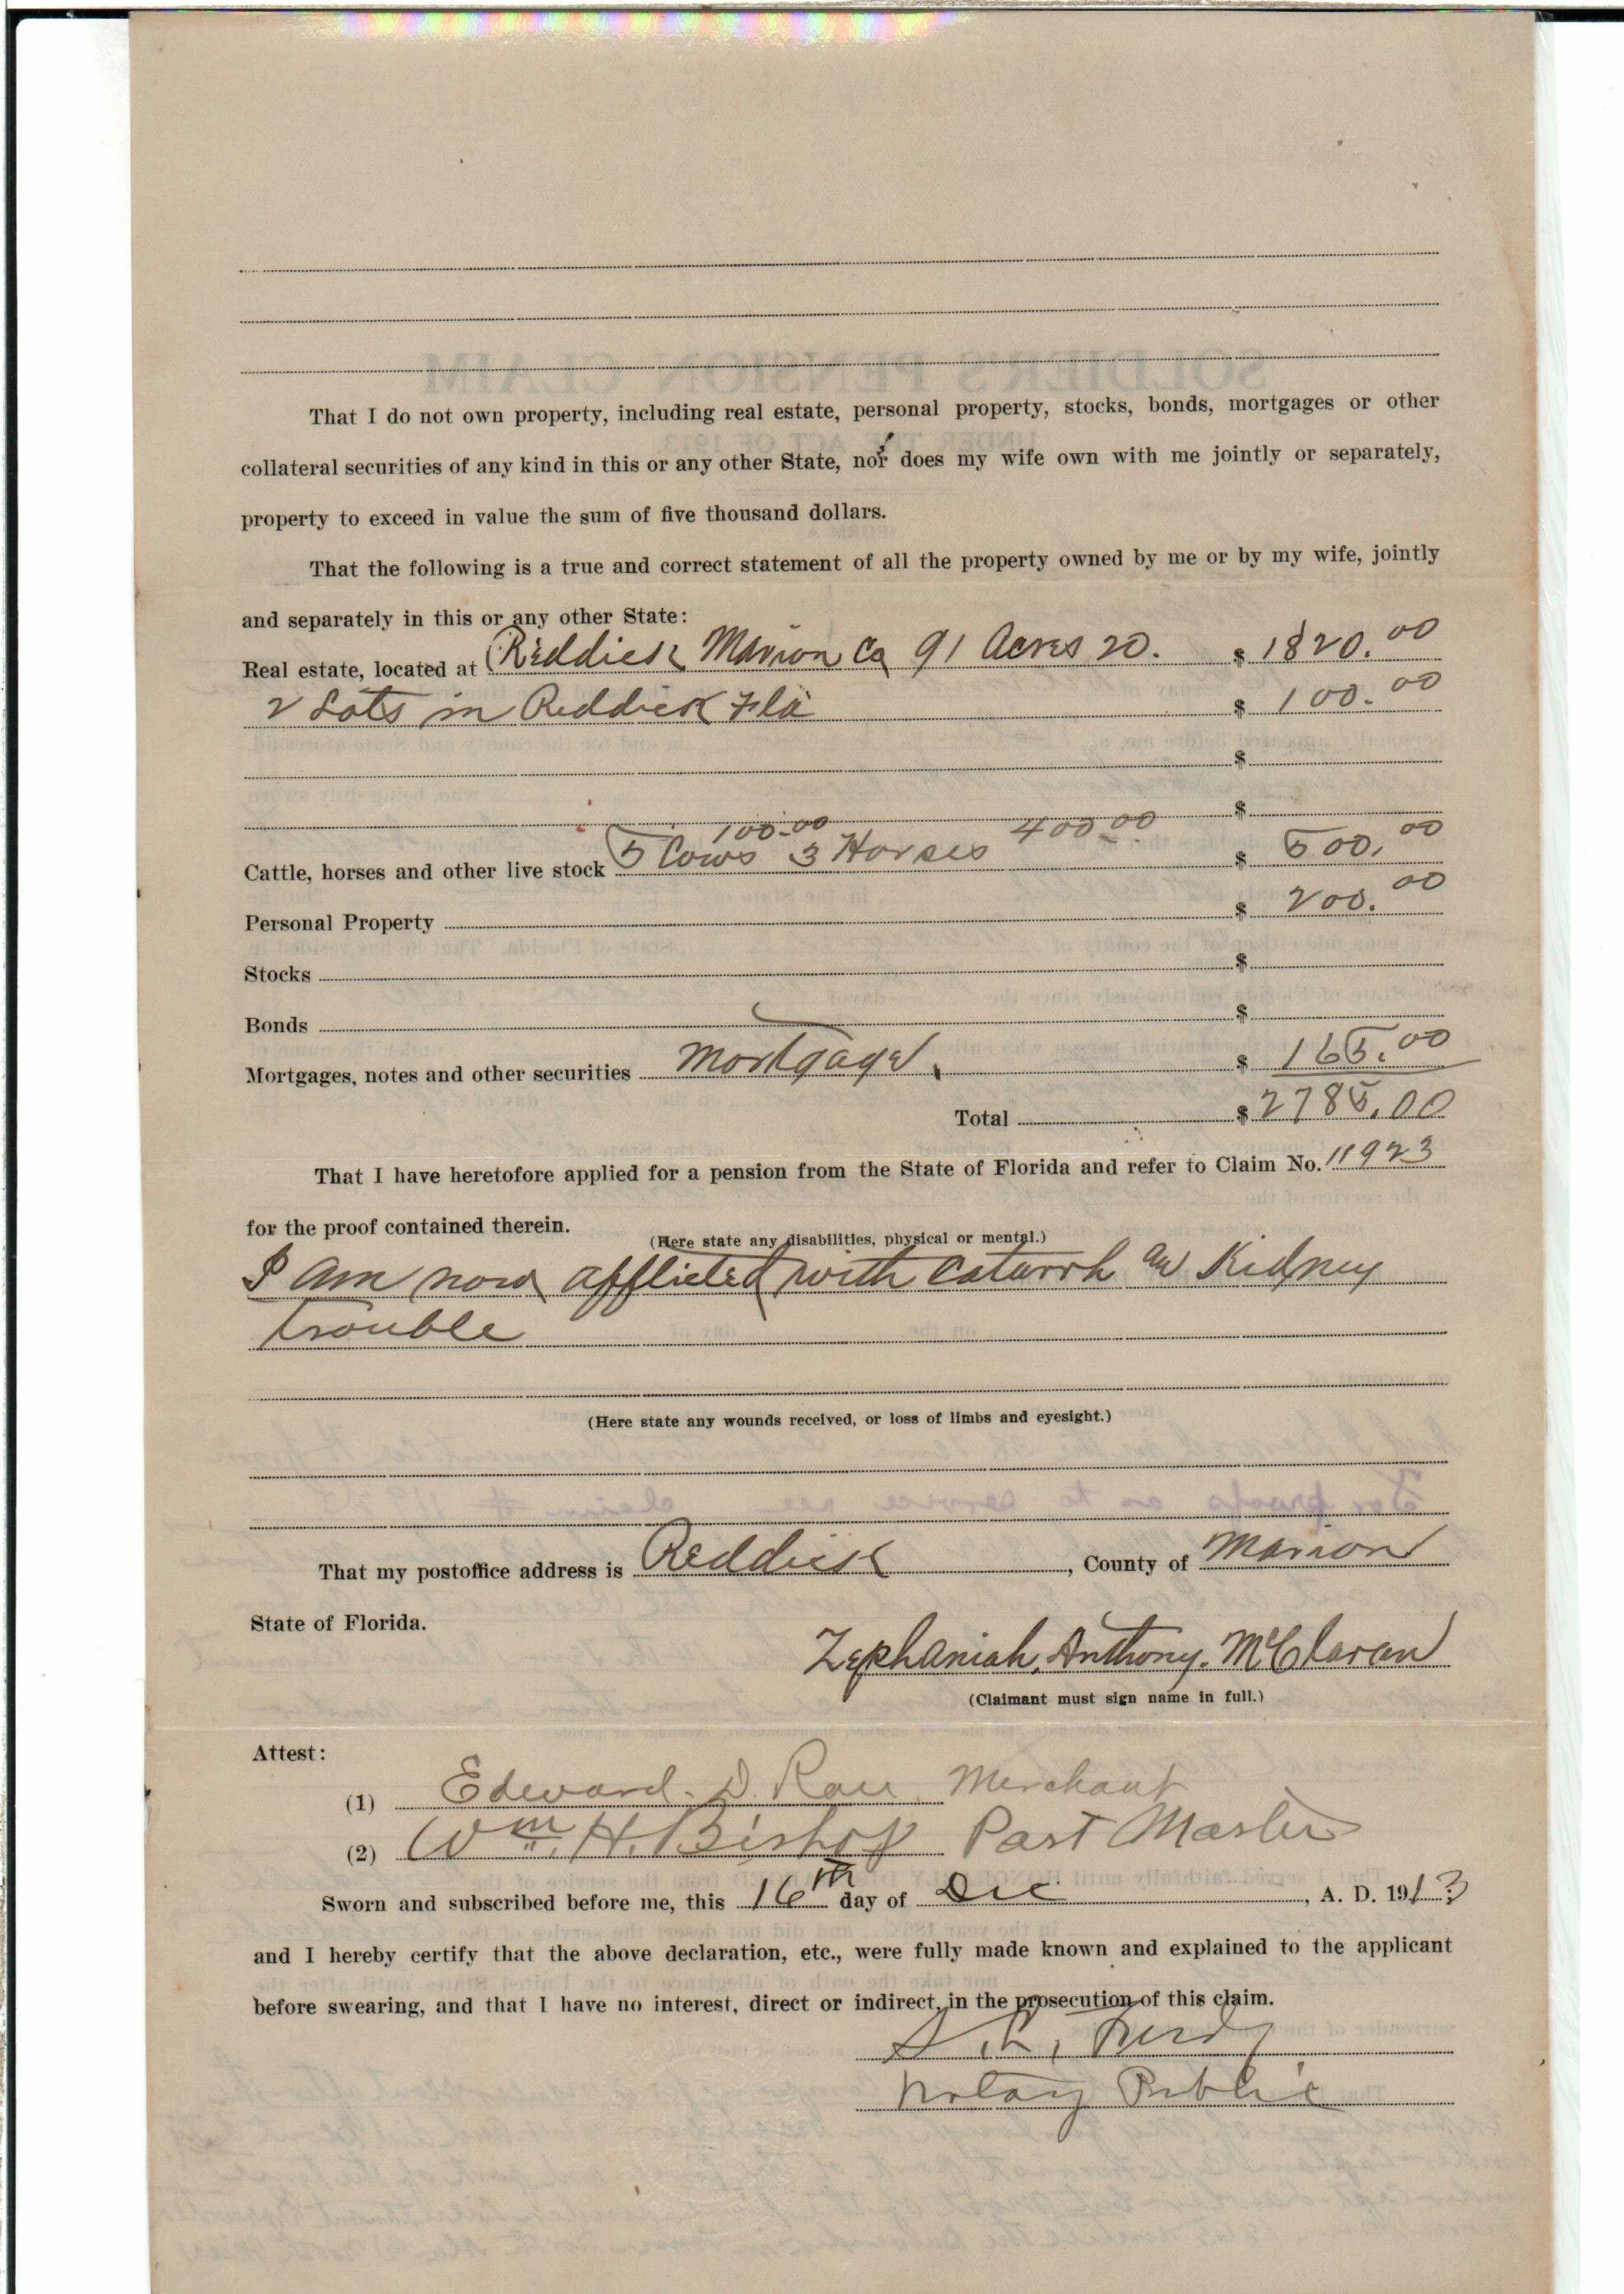 That I do not own property, including real estate, personal property, stocks, bonds, mortgages or other
collateral securities of any kind in this or any other State, nor does my wife own with me jointly or separately,
property to exceed in value the sum of five thousand dollars.
That the following is a true and correct statement of all the property owned by me or by my wife, jointly
and separately in this or any other State:
Real estate, located at Reddick Marion Co 91 Acres 20. $ 1820.00
2 Lots in Reddick Fla $ 100.00
$
$
100.00 400.00
Cattle, horses and other live stock 5 Cows 3 Horses $ 500.00
Personal Property $ 200.00
Stocks $
Bonds $
Mortgages, notes and other securities Mortgage. $ 165.00
Total $ 2785.00
That I have heretofore applied for a pension from the State of Florida and refer to Claim No. 11923
for the proof contained therein.
(Here state any disabilities, physical or mental.)
I am now afflicted with catarrh an Kidney
trouble
(Here state any wounds received, or loss of limbs and eyesight.)
That my postoffice address is Reddick, County of Marion
State of Florida.
Zephaniah, Anthony. McClaran
(Claimant must sign name in full.)
Attest:
(1) Edward. D. Merchant
(2) Wm. H. Bishop Post Master
Sworn and subscribed before me, this 16th day of Dec, A. D. 1913
and I hereby certify that the above declaration, etc., were fully made known and explained to the applicant
before swearing, and that I have no interest, direct or indirect, in the prosecution of this claim.
Notary Public